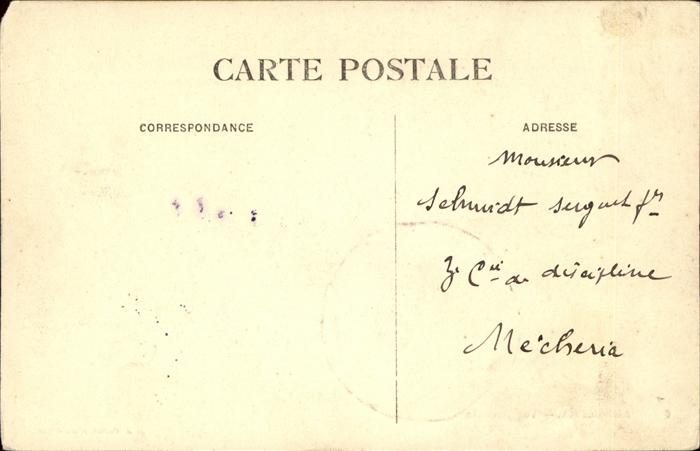 CARTE POSTALE
CORRESPONDANCE
ADRESSE
Monsieur
Schmidt sergent frs
3e Cie de discipline
Mécheria